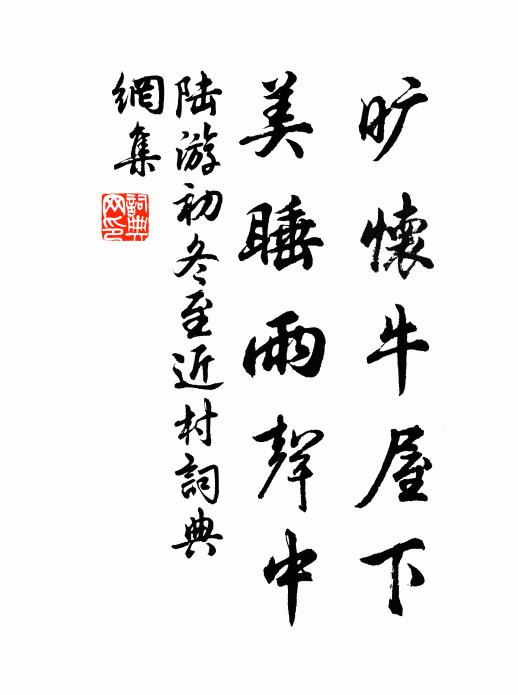 旷懷牛屋下
美睡雨聲中
陆游初冬至近村詞典
網集
詞典
网印